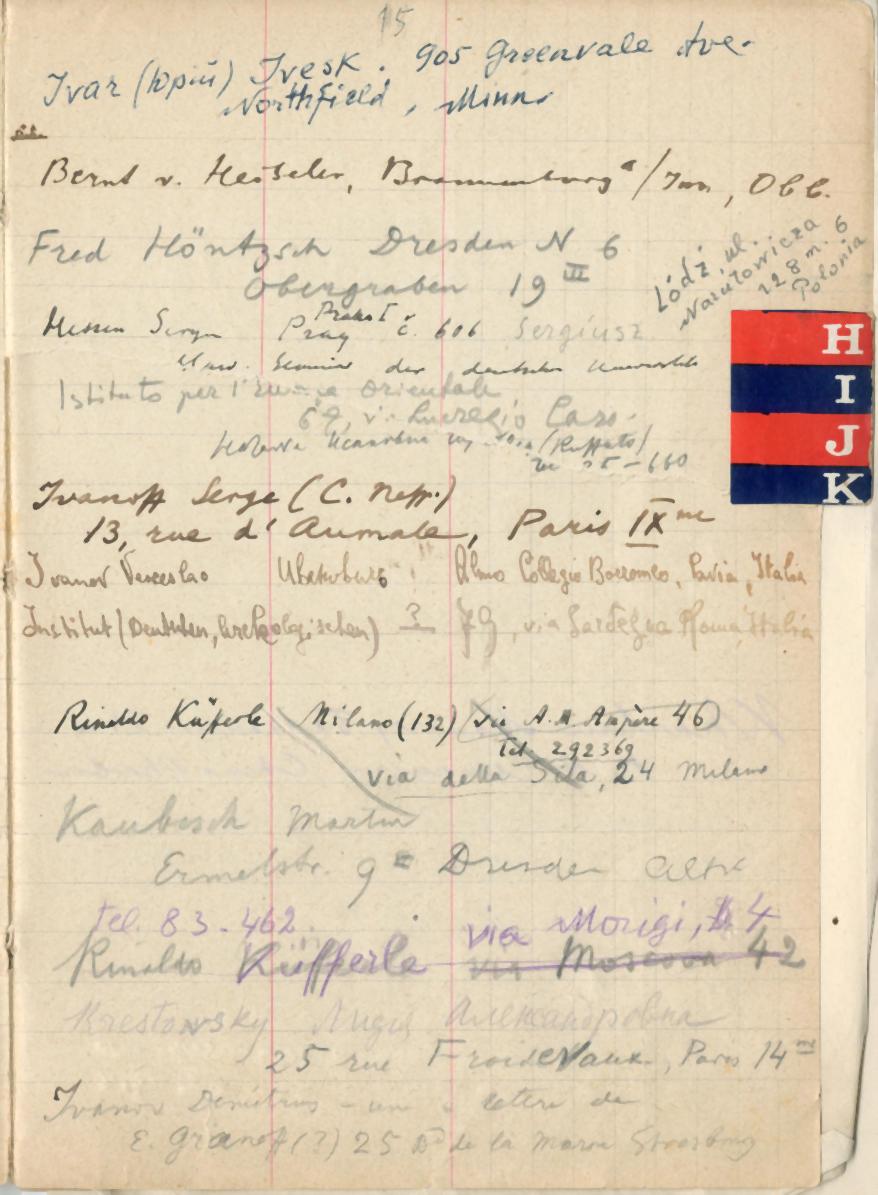 15
Ivar (Юрий) Ivesk. 905 Greenvale Ave.
Northfield, Minn.
Bernt v. Heiseler, Brannenburg a/Inn, Obb.
Fred Höntzsch Dresden N 6
Obergraben 19 III
Łódź, ul.
Narutowicza
128 m. 6
Polonia
Hessen Sergius Praha I
Prag č. 606 Sergiusz
Seminar der deutschen Universität
Istituto per l'Europa Orientale
67, via Lucrezio Caro.
(Ruffato)
H
I
J
K
Ivanoff Serge (С. Непр.)
13, rue d'Aumale, Paris IX me
Ivanov Venceslao Almo Collegio Borromeo, Pavia, Italia
Institut (Deutschen, Archeologischen) 79, via Sardegna Roma, Italia
Rinaldo Küfferle Milano (132) via A. M. Ampère 46
Tel. 292369
via della Sila, 24 Milano
Kaubisch Martin
Ermelstr. 9 II Dresden Altst
tel. 83-462. via Morigi, 4
Rinaldo Küfferle via Moscova 42
Krestovsky Лидия Александровна
25 rue Froidevaux, Paris 14
Ivanov Demetrius - lettere da
E. Granoff (?) 25 Bd de la Marne Strasbourg